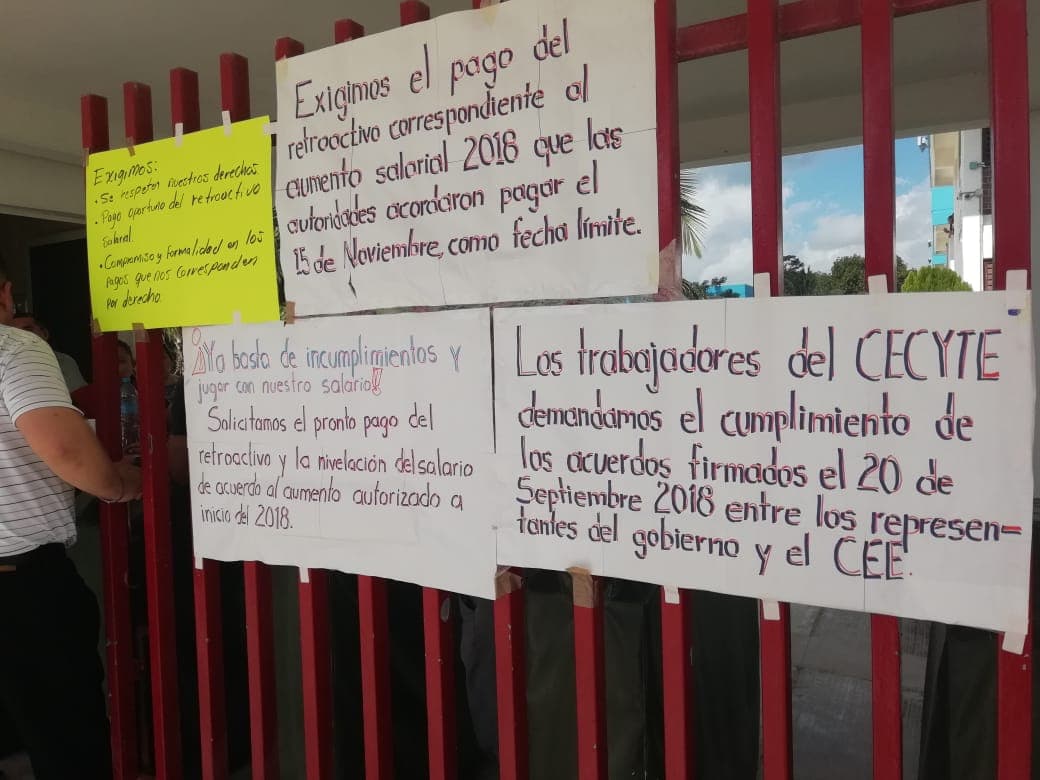 Exigimos:
• Se respeten nuestros derechos
• Pago oportuno del retroactivo
Salarial.
• Compromiso y formalidad en los
pagos que nos corresponden
por derecho.
Exigimos el pago del
retroactivo correspondiente al
aumento salarial 2018 que las
autoridades acordaron pagar el
15 de Noviembre, como fecha límite.
¡Ya basta de incumplimientos y
jugar con nuestro salario!
Solicitamos el pronto pago del
retroactivo y la nivelación del salario
de acuerdo al aumento autorizado a
inicio del 2018.
Los trabajadores del CECYTE
demandamos el cumplimiento de
los acuerdos firmados el 20 de
Septiembre 2018 entre los represen=
tantes del gobierno y el CEE.